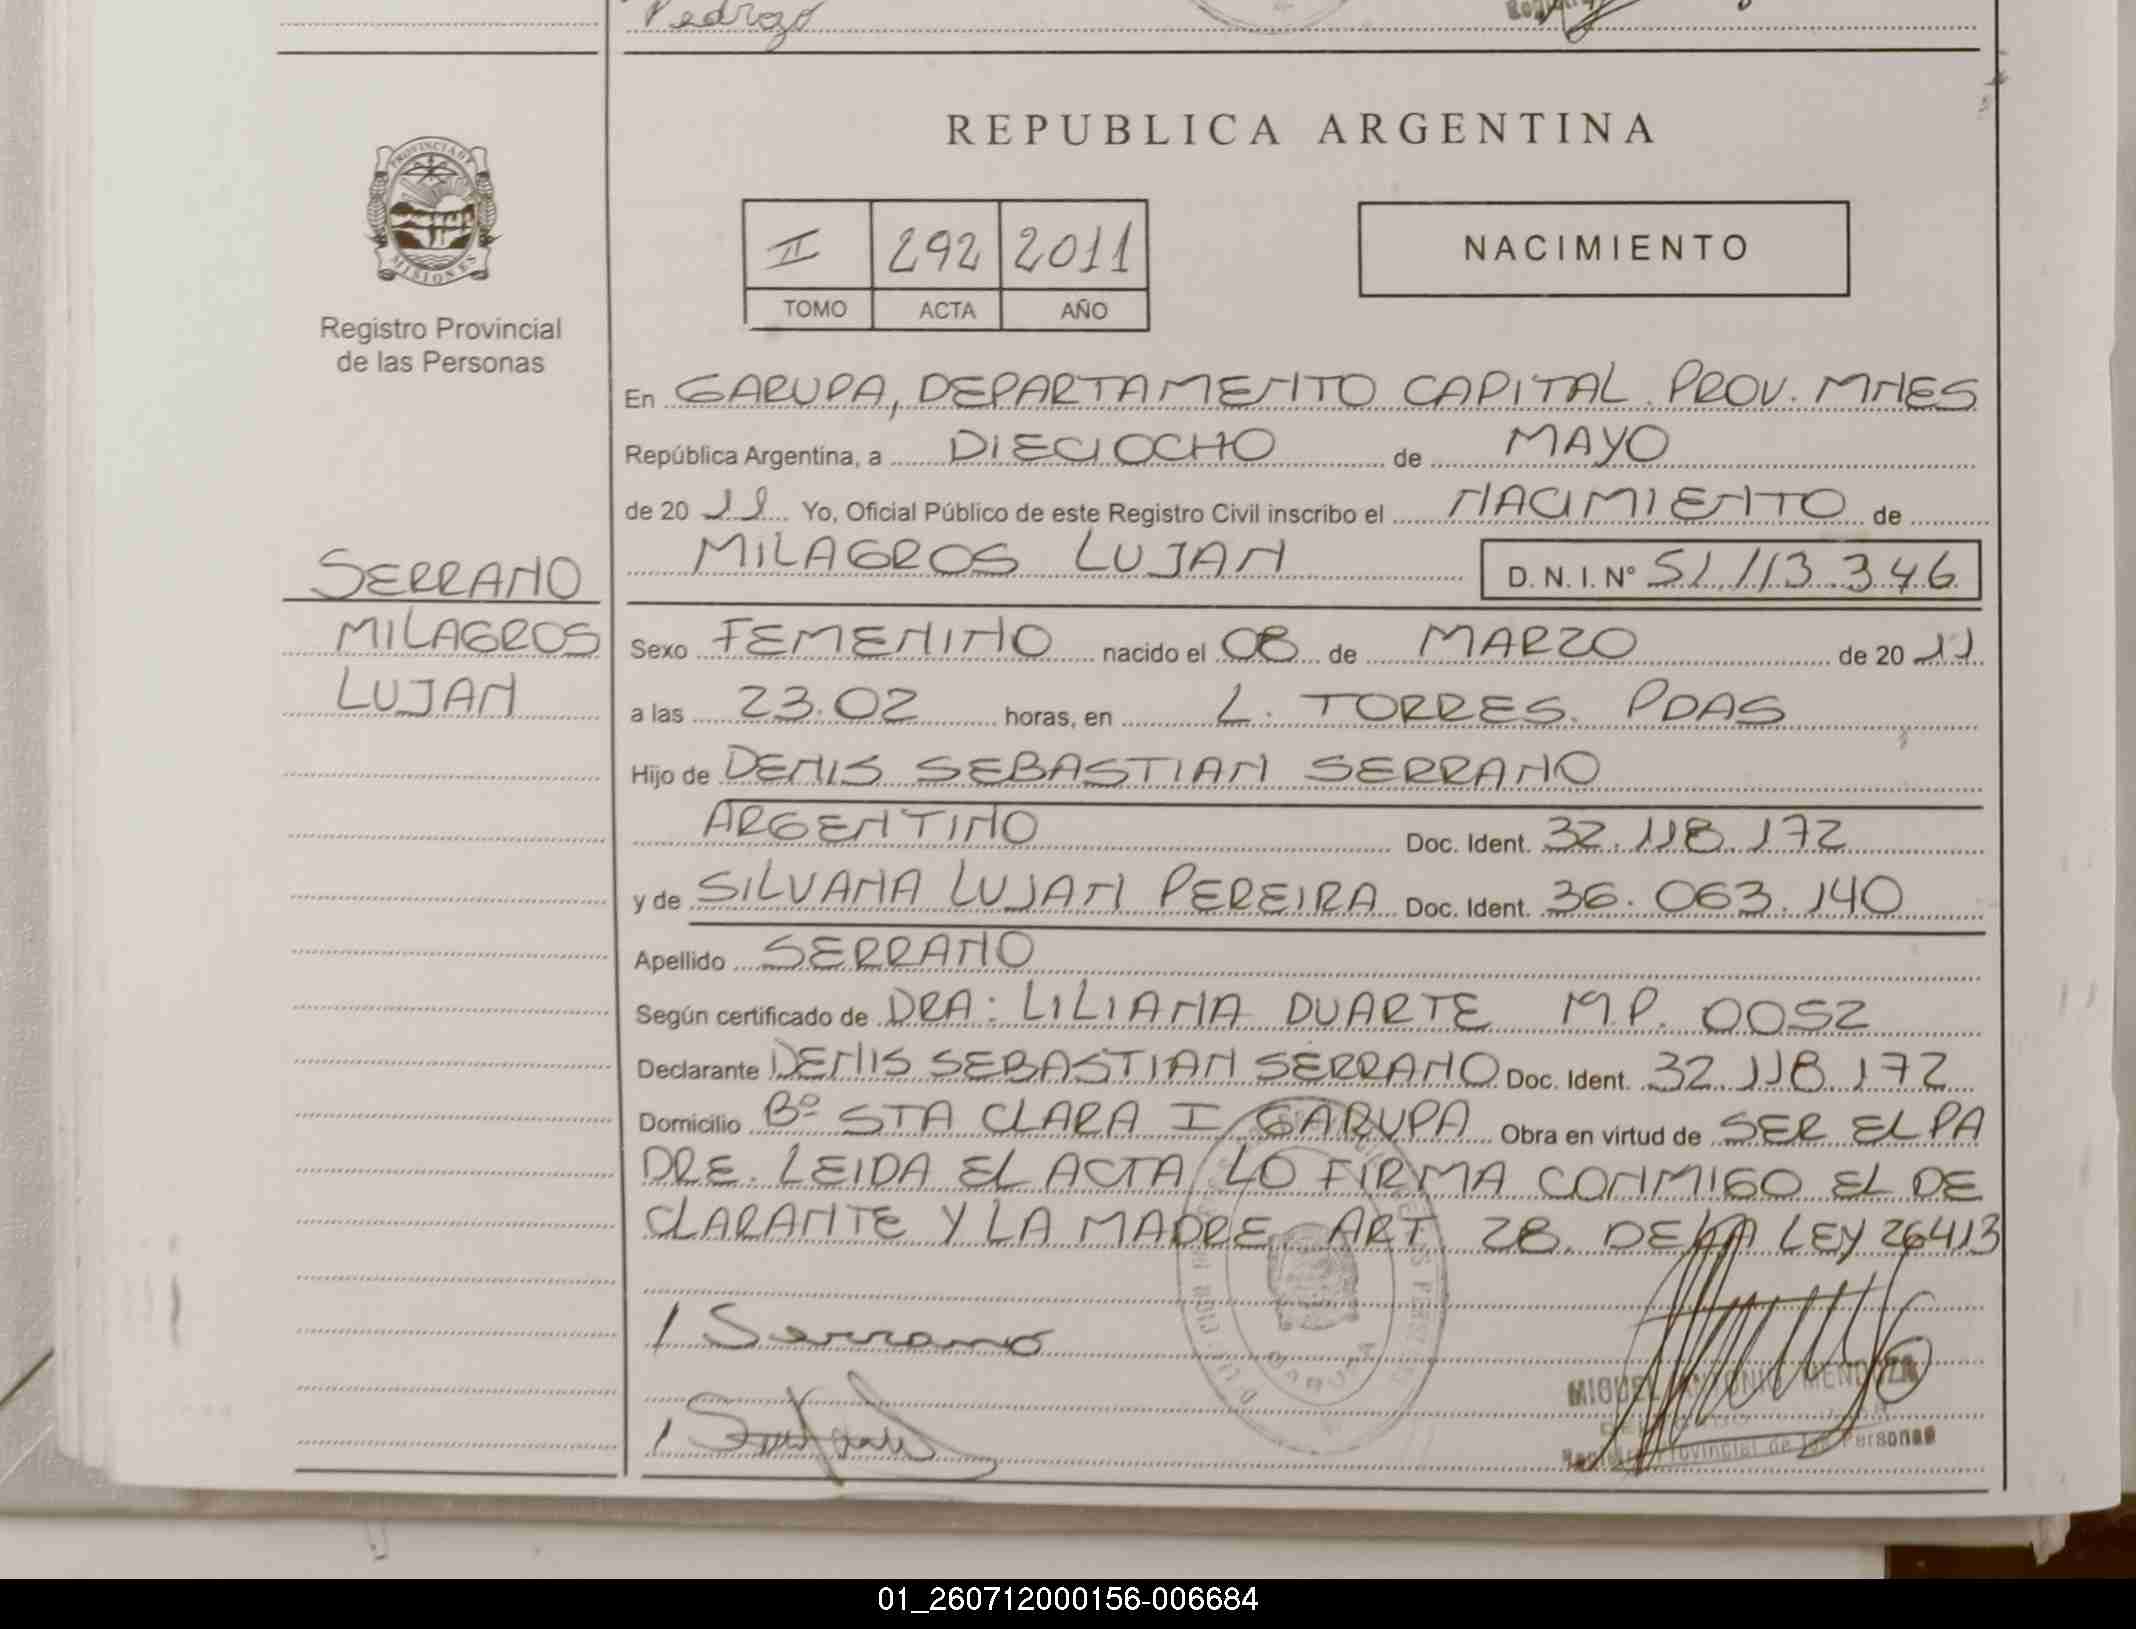 Pedrozo
REPUBLICA ARGENTINA
PROVINCIA DE
MISIONES
II 292 2011
TOMO ACTA AÑO
NACIMIENTO
Registro Provincial
de las Personas
En GARUPA, DEPARTAMENTO CAPITAL. PROV. MNES
República Argentina, a DIECIOCHO de MAYO
de 20 11 Yo, Oficial Público de este Registro Civil inscribo el NACIMIENTO de
MILAGROS LUJAN D. N. I. Nº 51.113.346
SERRANO
MILAGROS
LUJAN
Sexo FEMENINO nacido el 08 de MARZO de 20 11
a las 23.02 horas, en L. TORRES. PDAS
Hijo de DENIS SEBASTIAN SERRANO
ARGENTINO Doc. Ident. 32.118.172
y de SILVANA LUJAN PEREIRA Doc. Ident. 36.063.140
Apellido SERRANO
Según certificado de DRA: LILIANA DUARTE M.P. 0052
Declarante DENIS SEBASTIAN SERRANO Doc. Ident. 32.118.172
Domicilio Bº STA CLARA I GARUPA Obra en virtud de SER EL PA
DRE. LEIDA EL ACTA LO FIRMA CONMIGO EL DE
CLARANTE Y LA MADRE. ART. 28. DE LA LEY 26413
Serrano
MIGUEL ANTONIO MENDOZA
Registro Provincial de las Personas
01_260712000156-006684